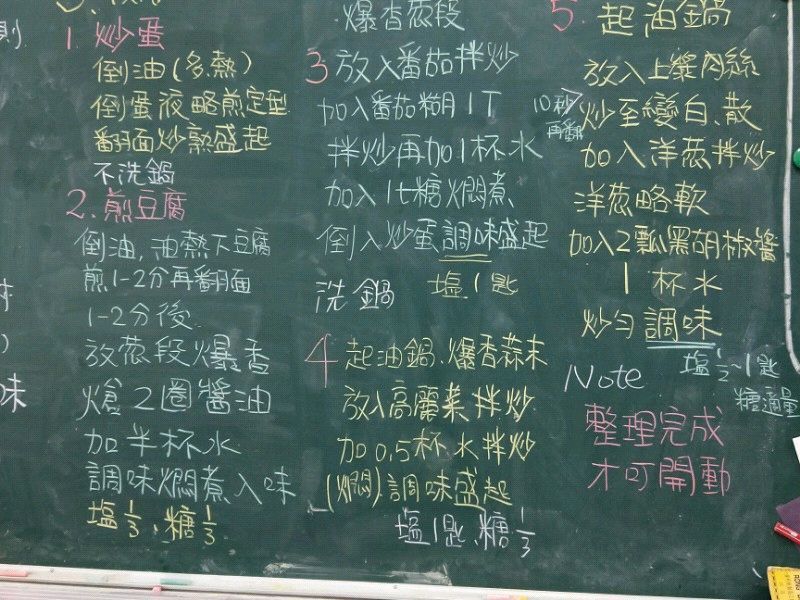 1. 炒蛋
倒油(多.熱)
倒蛋液略煎定型
翻面炒熟盛起
不洗鍋
2. 煎豆腐
倒油,油熱下豆腐
煎1-2分再翻面
1-2分後.
放蔥段爆香
熗2圈醬油
加半杯水
調味燜煮入味
塩1/3、糖1/3
爆香蔥段
3 放入番茄拌炒
加入番茄糊1T
拌炒再加1杯水
加入1t糖燜煮.
倒入炒蛋調味盛起
洗鍋 塩1匙
4 起油鍋.爆香蒜末
放入高麗菜拌炒
加0.5杯水拌炒
(燜).調味盛起
塩1匙、糖1/3
5. 起油鍋
放入上漿肉絲
10秒再翻
炒至變白、散
加入洋蔥拌炒
洋蔥略軟
加入2瓢黑胡椒醬
1杯水
炒勻調味
塩1/2~1匙
糖適量
Note
整理完成
才可開動
則
味